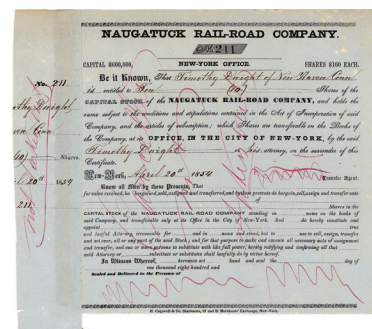 NAUGATUCK RAIL-ROAD COMPANY.
No. 211
CAPITAL $800,000, NEW-YORK OFFICE. SHARES $100 EACH.
No. 211.
Be it Known, That Timothy Dwight of New Haven Conn
is entitled to Ten (10) Shares of the
CAPITAL STOCK of the NAUGATUCK RAIL-ROAD COMPANY, and holds the
same subject to the conditions and stipulations contained in the Act of Incorporation of said
Company, and the articles of subscription; which Shares are transferable on the Books of
the Company, at its OFFICE, IN THE CITY OF NEW-YORK, by the said
Timothy Dwight his attorney, on the surrender of this
Certificate.
New-York, April 20th 1854
Transfer Agent.
Know all Men by these Presents, That
for value received, he bargained, sold, assigned and transferred, and by these presents do bargain, sell, assign and transfer unto
of Shares in the
CAPITAL STOCK of the NAUGATUCK RAIL-ROAD COMPANY standing in name on the books of
said Company, and transferable only at its Office in the City of New-York. And do hereby constitute and
appoint true
and lawful Attorney, irrevocable for and in name and stead, but to use, to sell, assign, transfer
and set over, all or any part of the said Stock; and for that purpose to make and execute all necessary acts of assignment
and transfer, and one or more persons to substitute with like full power, hereby ratifying and confirming all that
said Attorney or substitute or substitutes shall lawfully do by virtue hereof.
In Witness Whereof, hereunto set hand and seal the day of
one thousand eight hundred and
Sealed and Delivered in the Presence of
thy Dwight
ven Conn
Shares.
20th 1854
211